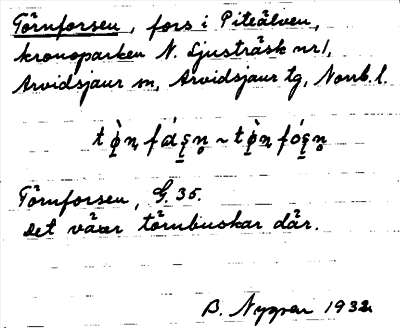 Törnforsen, fors i Piteälven,
kronoparken N. Ljusträsk nr 1,
Arvidsjaur sn, Arvidsjaur tg, Norrb. l.
Törnforsen, G. 35.
Det växer törnbuskar där.
B. Nygren 1932